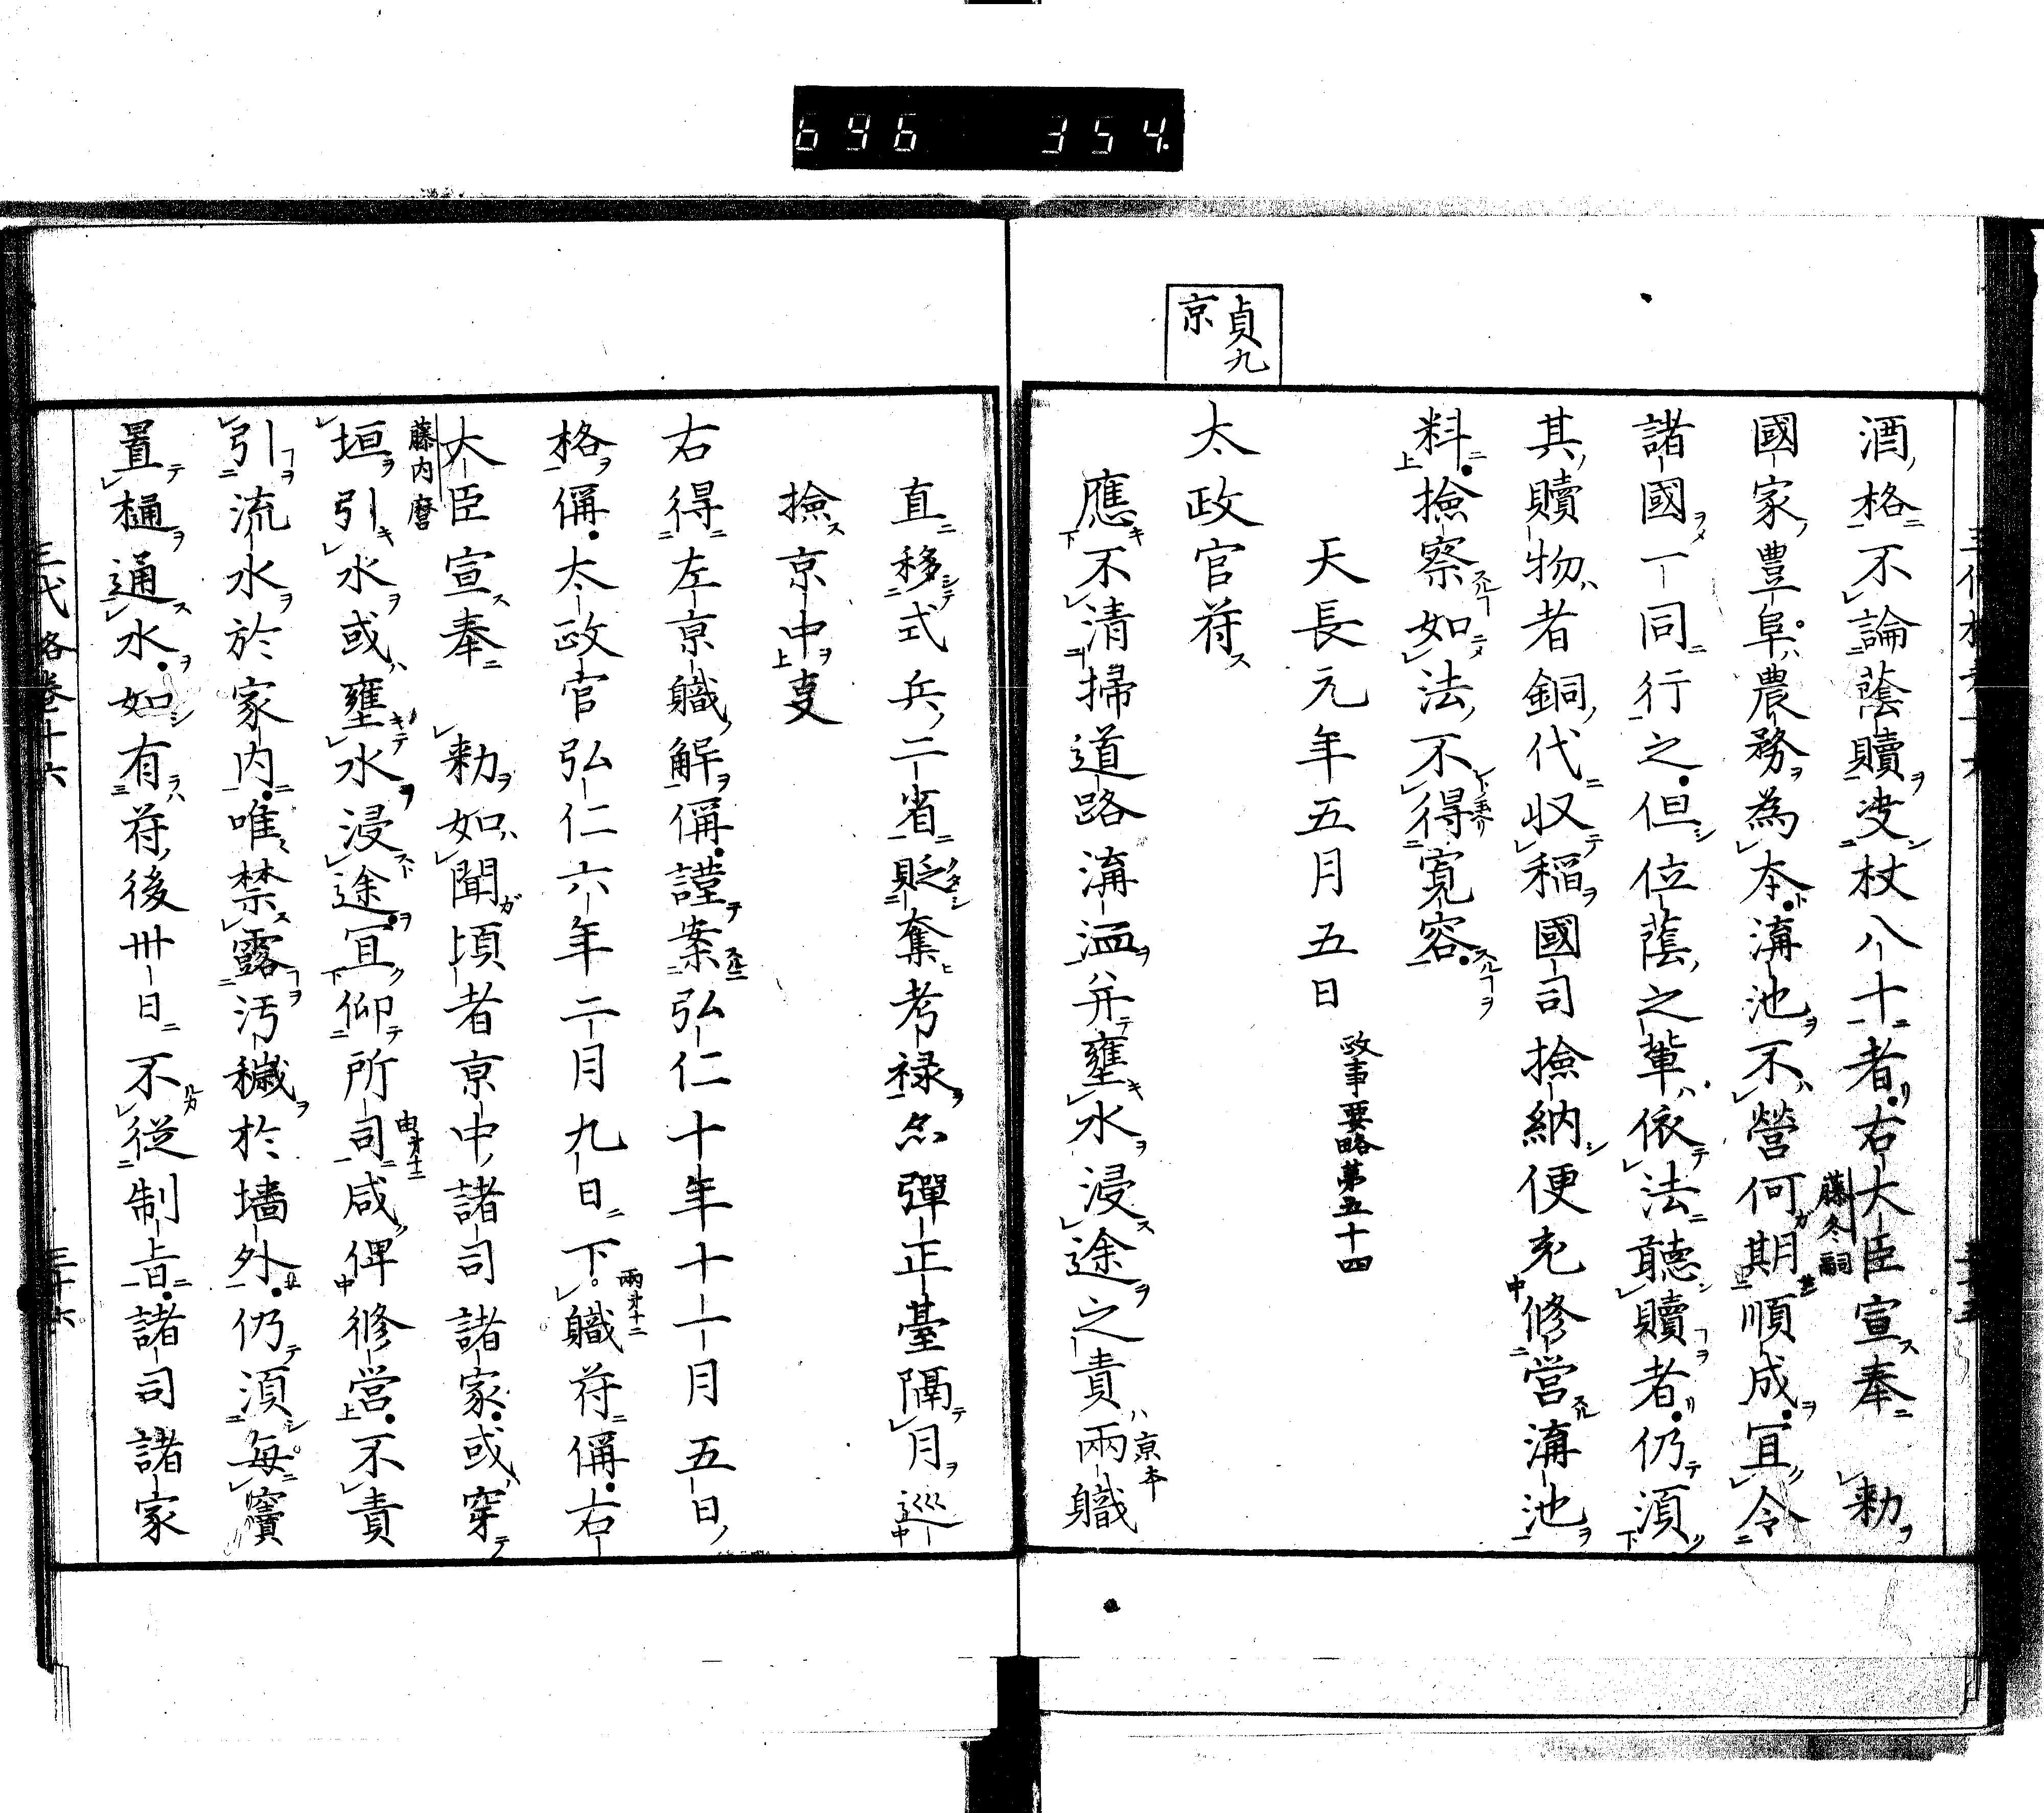 696 354
貞九
京
酒格不論蔭贖決杖八十者右大臣宣奉 勅
藤冬嗣
國家豊阜農務為本溝池不營何期順成宜令
諸國一同行之但位蔭之輩依法聴贖者仍湏
其贖物者銅代収稲國司撿納便充修営溝池
料撿察如法不得寛容
天長元年五月五日
政事要略第五十四
太政官苻
應不清掃道路溝洫并壅水浸途之責兩職
京本
直移式兵二省貶奪考禄亦彈正臺隔月巡
撿京中事
右得左京職解偁謹案弘仁十年十一月五日
格偁太政官弘仁六年二月九日下職苻偁右
兩弟十二
大臣宣奉 勅如聞頃者京中諸司諸家或穿
藤内麿
垣引水或壅水浸途宜仰所司咸俾修営不責
由弟十二
引流水於家内唯禁露汚穢於墻外仍湏毎竇
置樋通水如有苻後卅日不従制旨諸司諸家
三代格巻十六
三十六